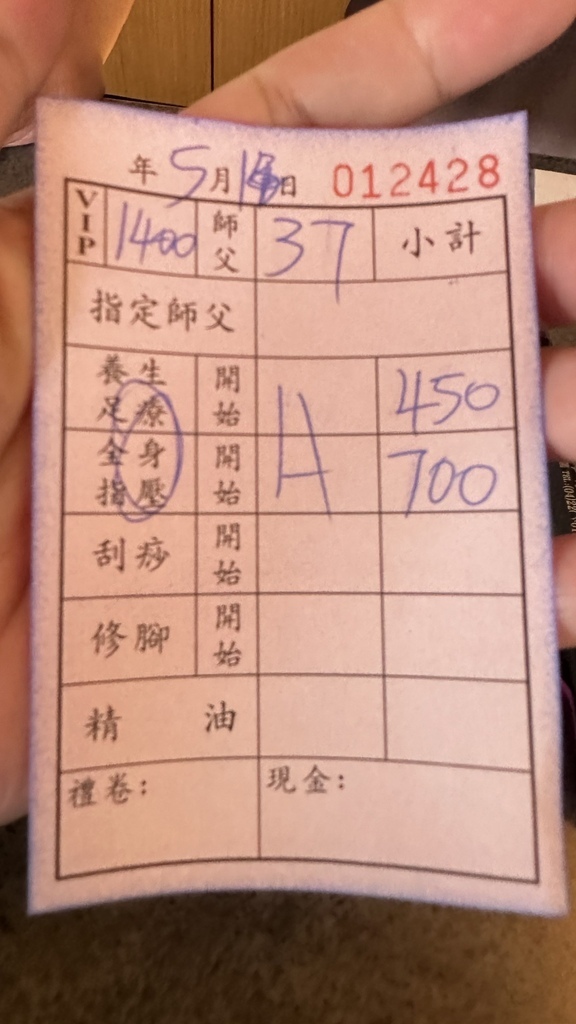 年 5 月 日 012428
VIP 1400 師父 37 小計
指定師父
養生足療 開始 A 450
全身指壓 開始 700
刮痧 開始
修腳 開始
精 油
禮卷: 現金: